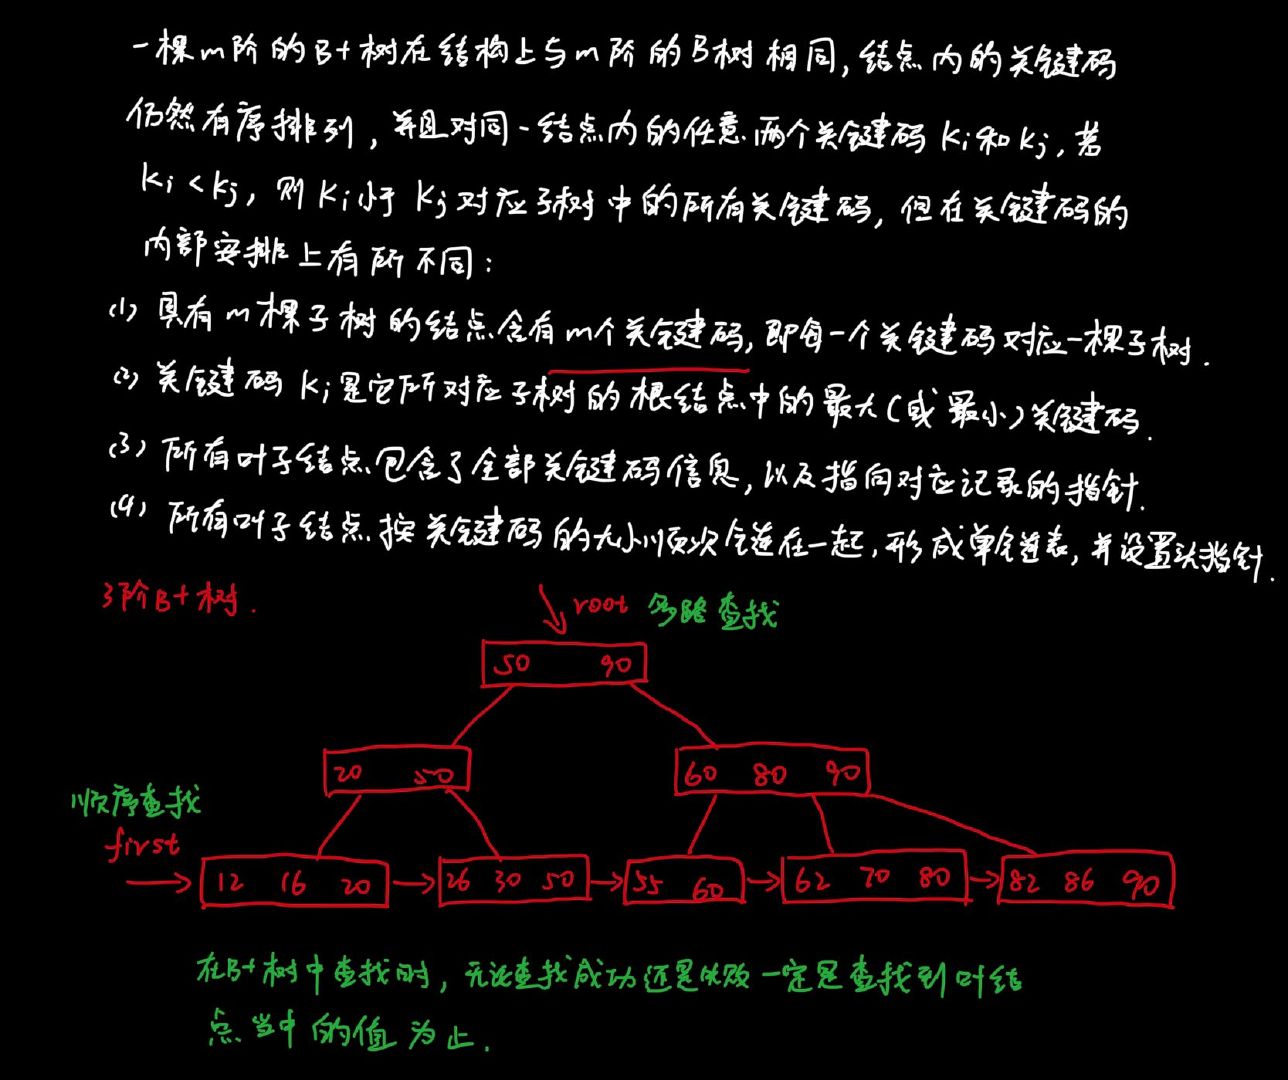 一棵m阶的B+树在结构上与m阶的B树相同,结点内的关键码
仍然有序排列,并且对同一结点内的任意两个关键码Ki和Kj,若
Ki<Kj,则Ki小于Kj对应子树中的所有关键码,但在关键码的
内部安排上有所不同:
(1) 具有m棵子树的结点含有m个关键码,即每一个关键码对应一棵子树.
(2) 关键码Ki是它所对应子树的根结点中的最大(或最小)关键码.
(3) 所有叶子结点包含了全部关键码信息,以及指向对应记录的指针.
(4) 所有叶子结点按关键码的大小顺次链在一起,形成单链表,并设置头指针.
3阶B+树.
root 多路查找
50 90
20 50
60 80 90
顺序查找
first
12 16 20
26 30 50
55 60
62 70 80
82 86 90
在B+树中查找时,无论查找成功还是失败一定是查找到叶结
点当中的值为止.